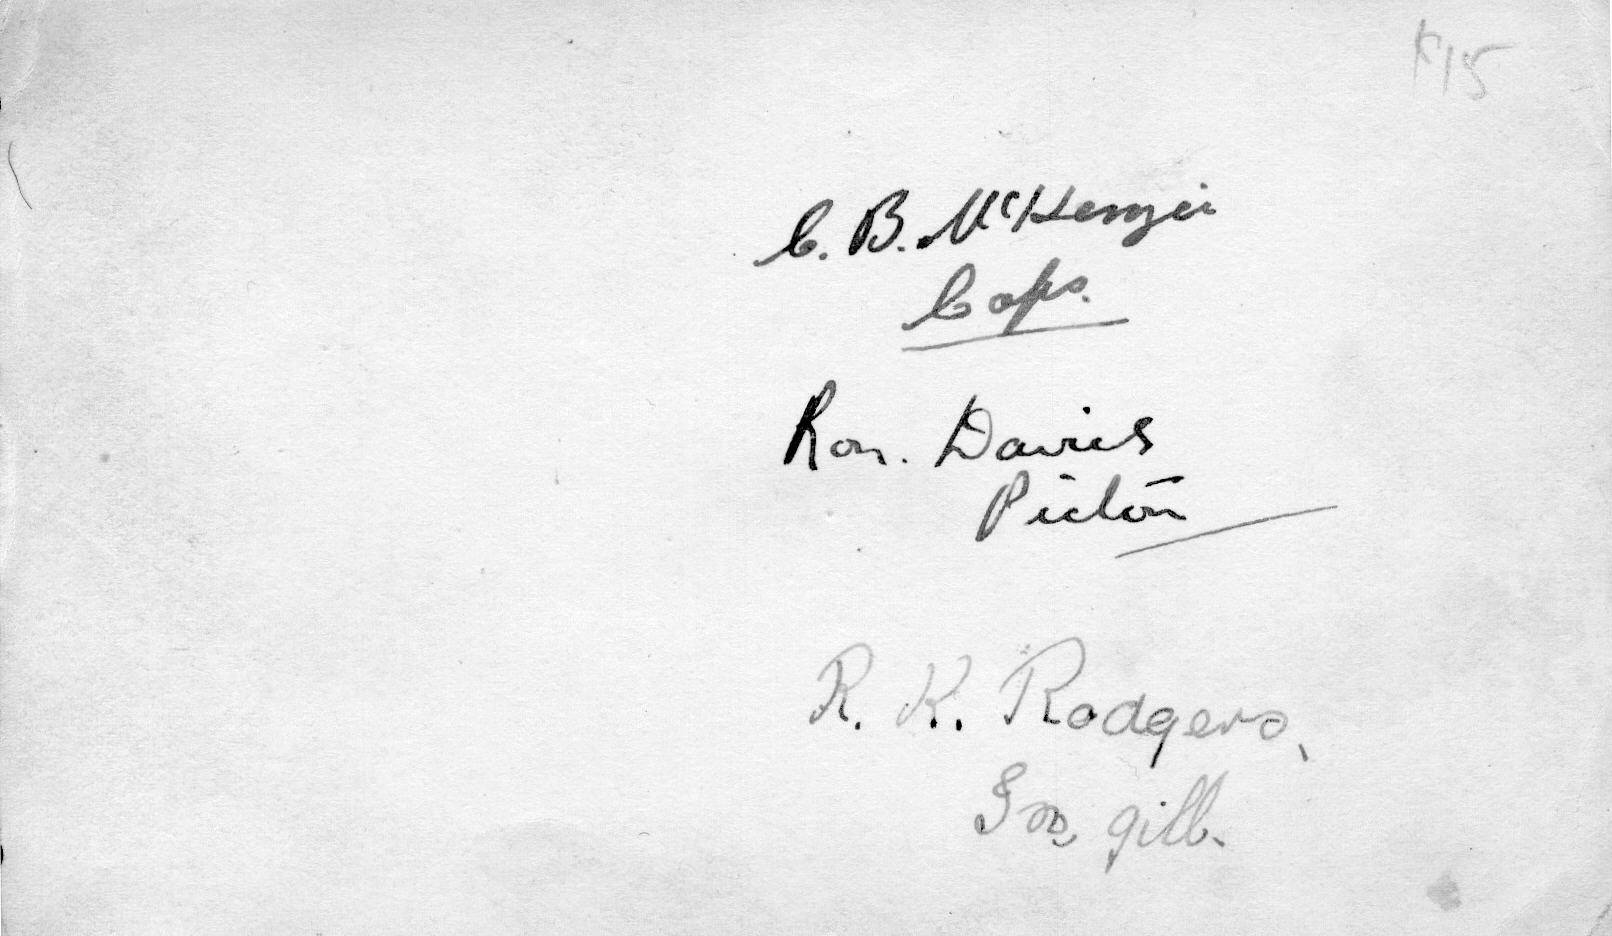 K15
C. B. McKenzie
Caps.
Ron. Davies
Picton
R. K. Rodgers,
gill.